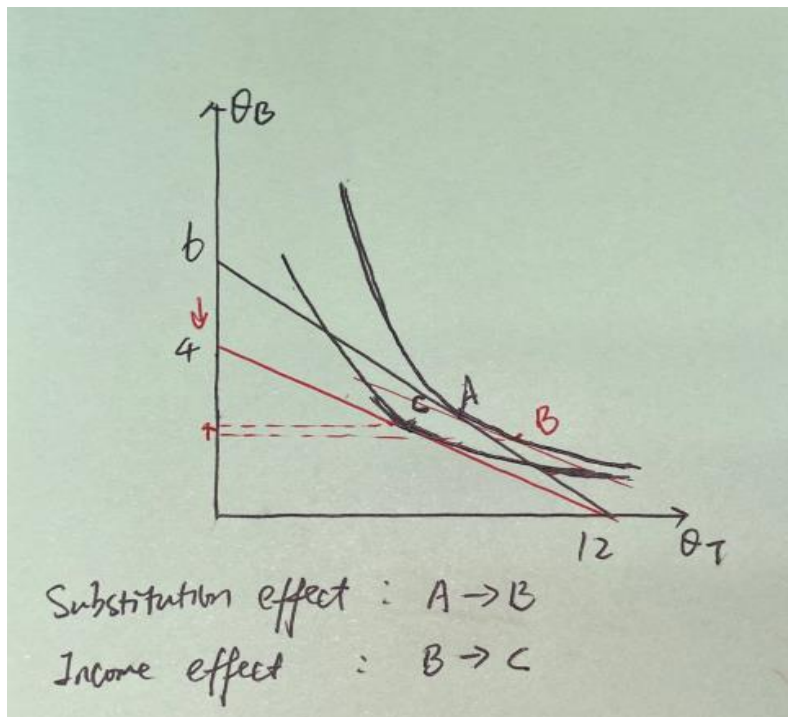 θB
6
4
C
A
B
12
θT
Substitution effect : A → B
Income effect : B → C